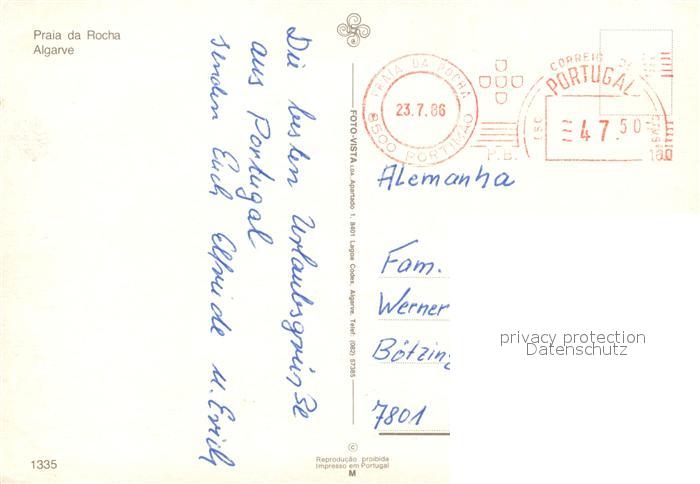 Praia da Rocha
Algarve
Die besten Urlaubsgrüße
aus Portugal
senden Euch Elfriede u. Erich
1335
FOTO-VISTA LDA. Apartado 1, 8401 Lagoa Codex, Algarve, Telef: (082) 57385
© Reprodução proibida
Impresso em Portugal
M
PRAIA DA ROCHA
23.7.86
8500 PORTIMÃO
P.B.
CORREIO DE
PORTUGAL
ESC.
47.50
Alemanha
Fam.
Werner
Bötzing
7801
privacy protection
Datenschutz